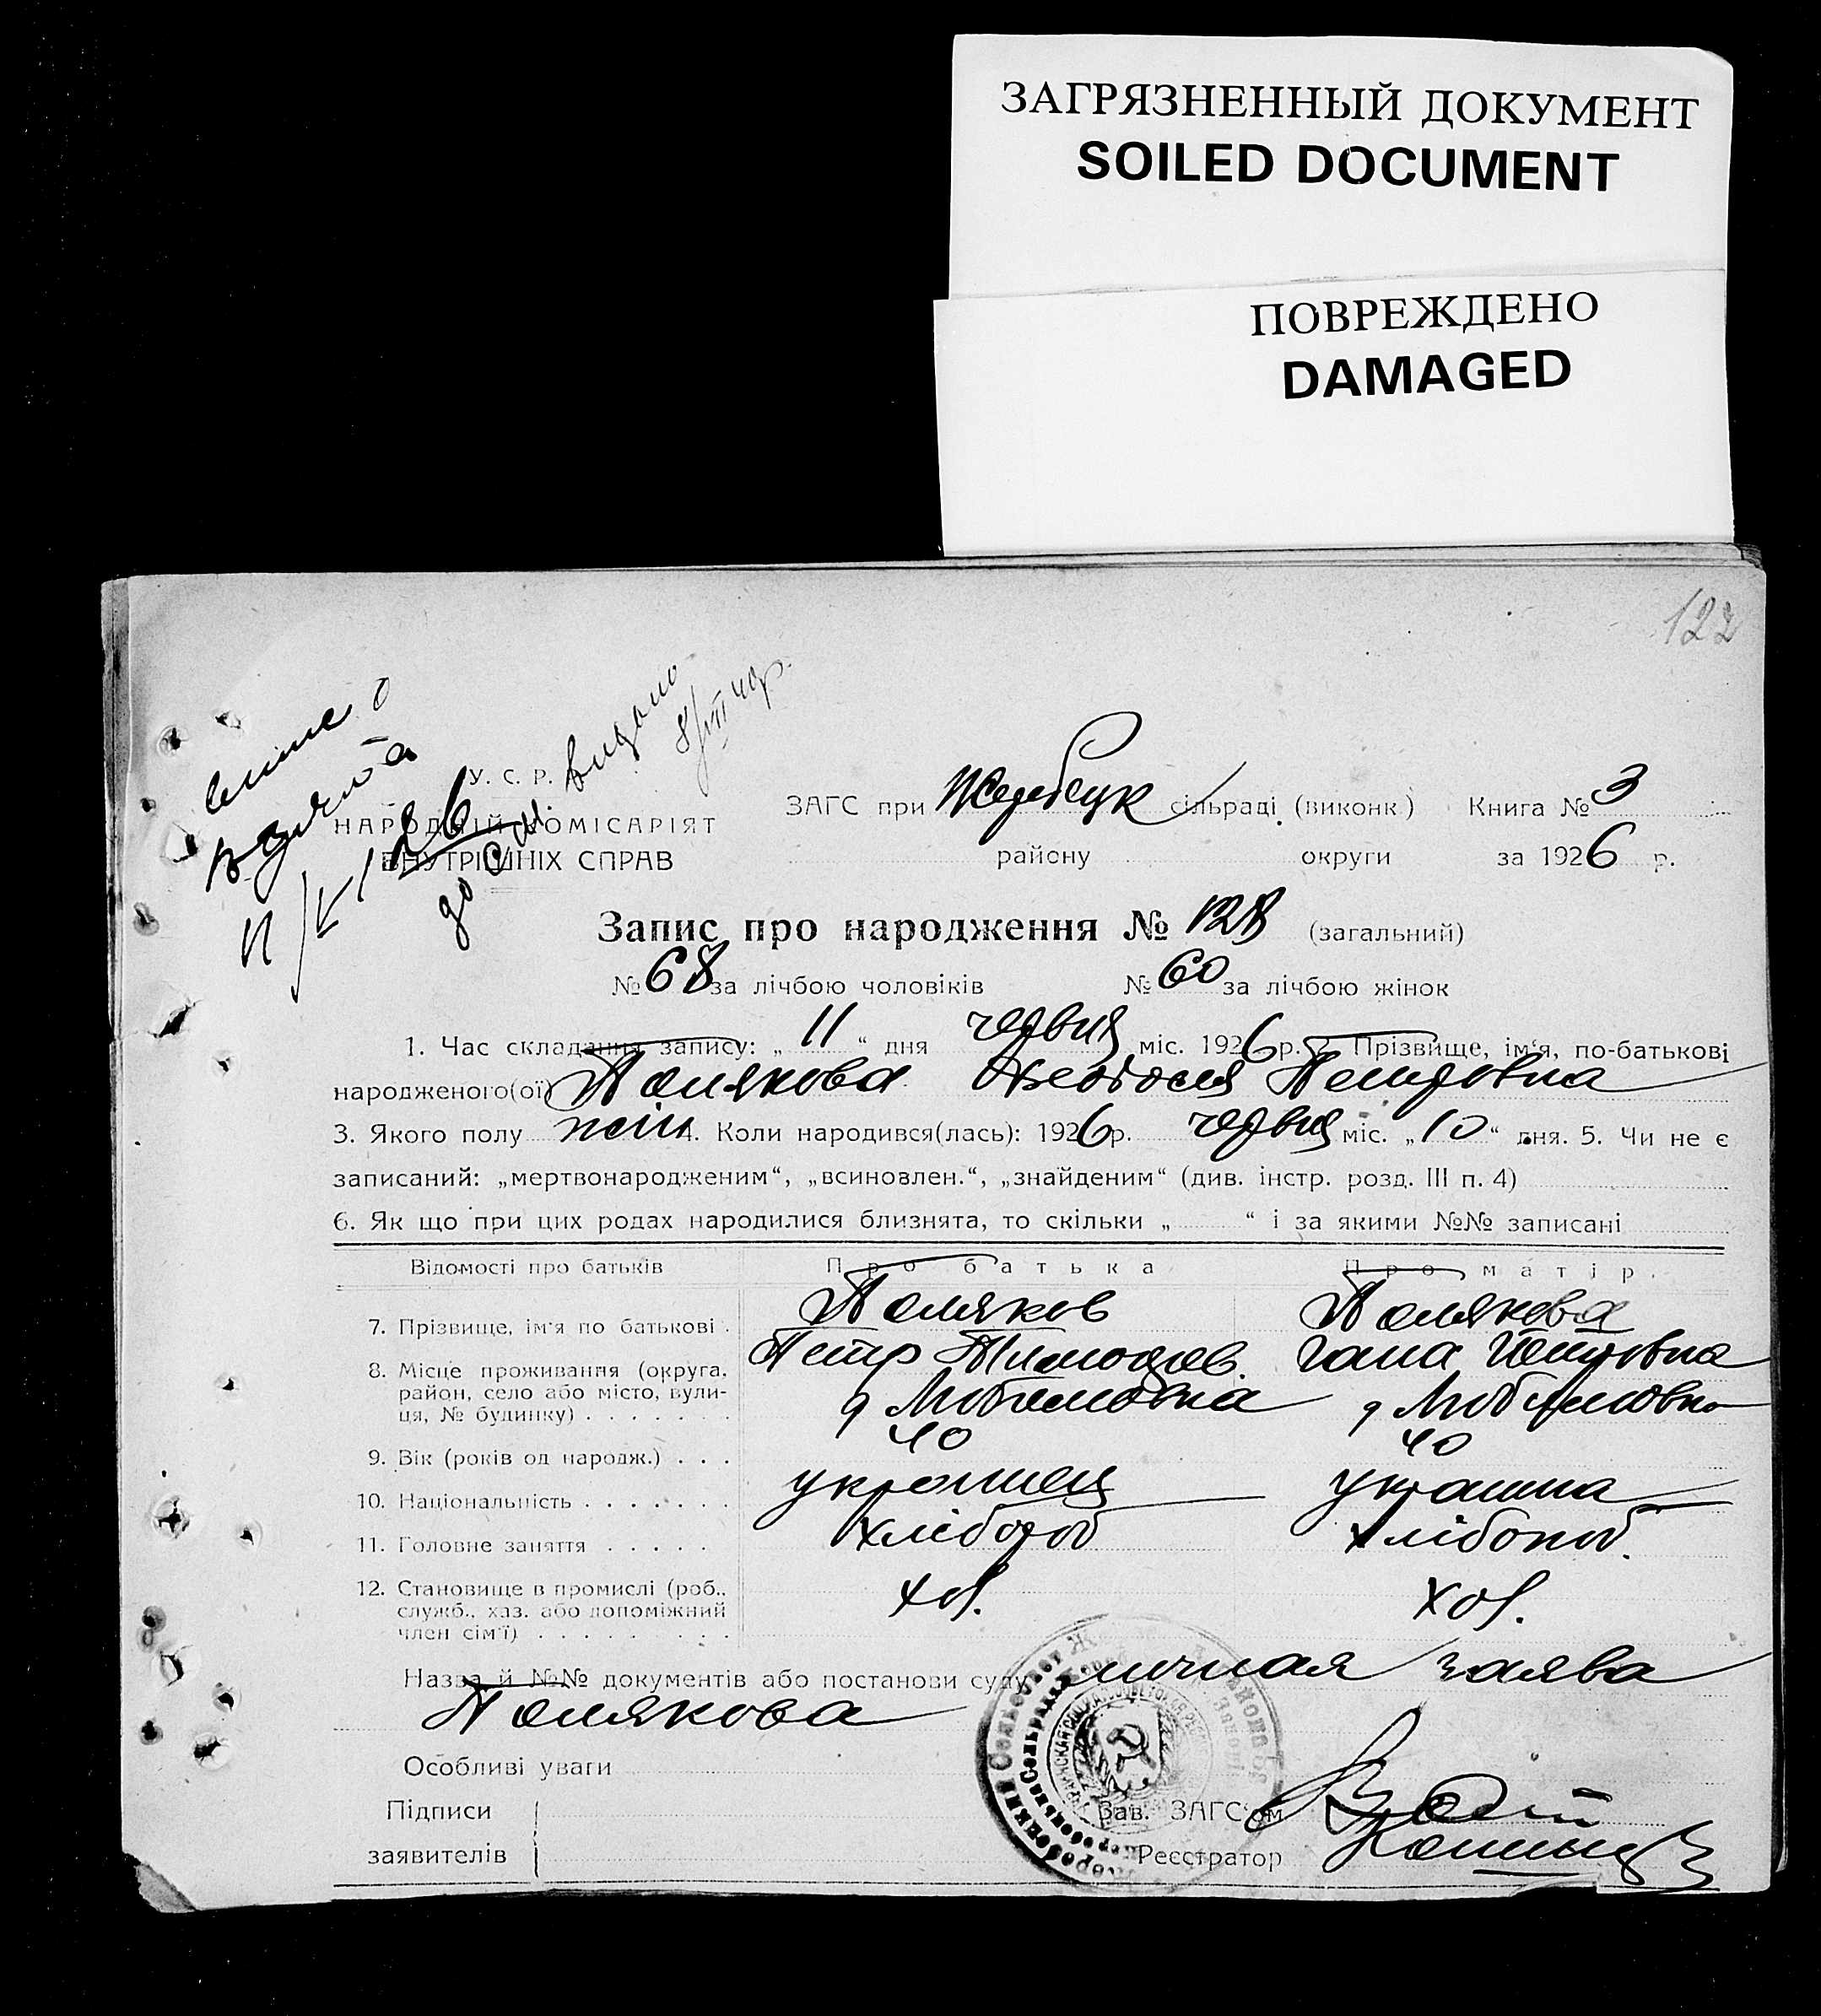 ЗАГРЯЗНЕННЫЙ ДОКУМЕНТ
SOILED DOCUMENT
ПОВРЕЖДЕНО
DAMAGED
122
видано
до
У. С. Р.
НАРОДНІЙ КОМІСАРІЯТ
ВНУТРІШНІХ СПРАВ
ЗАГС при Жеребецк сільраді (виконк) Книга № 3
району округи за 1926 р.
Запис про народження № 128 (загальний)
№ 68 за лічбою чоловіків № 60 за лічбою жінок
1. Час складання запису: „ 11 “ дня червня міс. 1926 р. 2. Прізвище, ім'я, по-батькові
народженого(ої) Полякова Феодосия Петровна
3. Якого полу жін 4. Коли народився(лась): 1926 р. червня міс. „ 10 “ дня. 5. Чи не є
записаний: „мертвонародженим“, „всиновлен.“, „знайденим“ (див. інстр. розд. III п. 4)
6. Як що при цих родах народилися близнята, то скільки „ “ і за якими №№ записані
Відомості про батьків Про батька Про матір.
7. Прізвище, ім'я по батькові . Поляков Полякова
Петр Тимофеев. Гана
8. Місце проживання (округа,
район, село або місто, вули-
ця, № будинку) . . . . . . . д Любимовка д Любимовка
9. Вік (років од народж.) . . . 40 40
10. Національність . . . . . . . українец українка
11. Головне заняття . . . . . хлібороб хлібороб.
12. Становище в промислі (роб.,
служб., хаз. або допоміжний
член сім'ї) . . . . . . . . хоз. хоз.
Назва й №№ документів або постанови суду личная заява
Полякова
Особливі уваги
Підписи
заявителів
Зав. ЗАГС'ом
Реєстратор